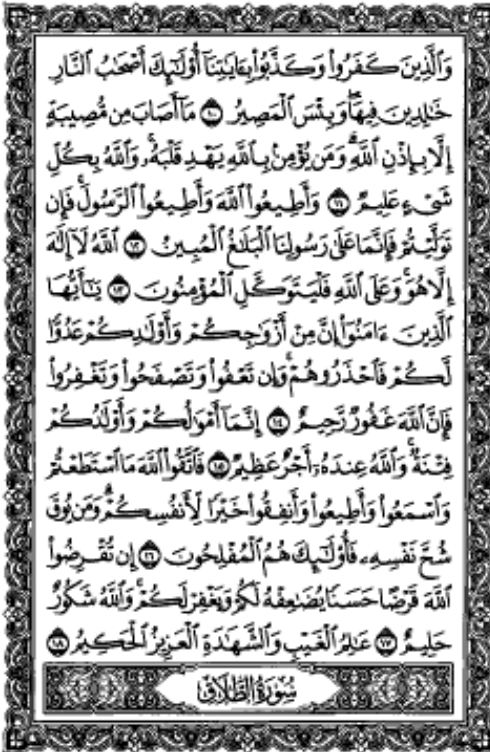 وَٱلَّذِينَ كَفَرُوا۟ وَكَذَّبُوا۟ بِـَٔايَـٰتِنَآ أُو۟لَـٰٓئِكَ أَصْحَـٰبُ ٱلنَّارِ
خَـٰلِدِينَ فِيهَا ۖ وَبِئْسَ ٱلْمَصِيرُ ١٠ مَآ أَصَابَ مِن مُّصِيبَةٍ
إِلَّا بِإِذْنِ ٱللَّهِ ۗ وَمَن يُؤْمِنۢ بِٱللَّهِ يَهْدِ قَلْبَهُۥ ۚ وَٱللَّهُ بِكُلِّ
شَىْءٍ عَلِيمٌ ١١ وَأَطِيعُوا۟ ٱللَّهَ وَأَطِيعُوا۟ ٱلرَّسُولَ ۚ فَإِن
تَوَلَّيْتُمْ فَإِنَّمَا عَلَىٰ رَسُولِنَا ٱلْبَلَـٰغُ ٱلْمُبِينُ ١٢ ٱللَّهُ لَآ إِلَـٰهَ
إِلَّا هُوَ ۚ وَعَلَى ٱللَّهِ فَلْيَتَوَكَّلِ ٱلْمُؤْمِنُونَ ١٣ يَـٰٓأَيُّهَا
ٱلَّذِينَ ءَامَنُوٓا۟ إِنَّ مِنْ أَزْوَٰجِكُمْ وَأَوْلَـٰدِكُمْ عَدُوًّا
لَّكُمْ فَٱحْذَرُوهُمْ ۚ وَإِن تَعْفُوا۟ وَتَصْفَحُوا۟ وَتَغْفِرُوا۟
فَإِنَّ ٱللَّهَ غَفُورٌ رَّحِيمٌ ١٤ إِنَّمَآ أَمْوَٰلُكُمْ وَأَوْلَـٰدُكُمْ
فِتْنَةٌ ۚ وَٱللَّهُ عِندَهُۥٓ أَجْرٌ عَظِيمٌ ١٥ فَٱتَّقُوا۟ ٱللَّهَ مَا ٱسْتَطَعْتُمْ
وَٱسْمَعُوا۟ وَأَطِيعُوا۟ وَأَنفِقُوا۟ خَيْرًا لِّأَنفُسِكُمْ ۗ وَمَن يُوقَ
شُحَّ نَفْسِهِۦ فَأُو۟لَـٰٓئِكَ هُمُ ٱلْمُفْلِحُونَ ١٦ إِن تُقْرِضُوا۟
ٱللَّهَ قَرْضًا حَسَنًا يُضَـٰعِفْهُ لَكُمْ وَيَغْفِرْ لَكُمْ ۚ وَٱللَّهُ شَكُورٌ
حَلِيمٌ ١٧ عَـٰلِمُ ٱلْغَيْبِ وَٱلشَّهَـٰدَةِ ٱلْعَزِيزُ ٱلْحَكِيمُ ١٨
سُورَةُ الطَّلَاقِ